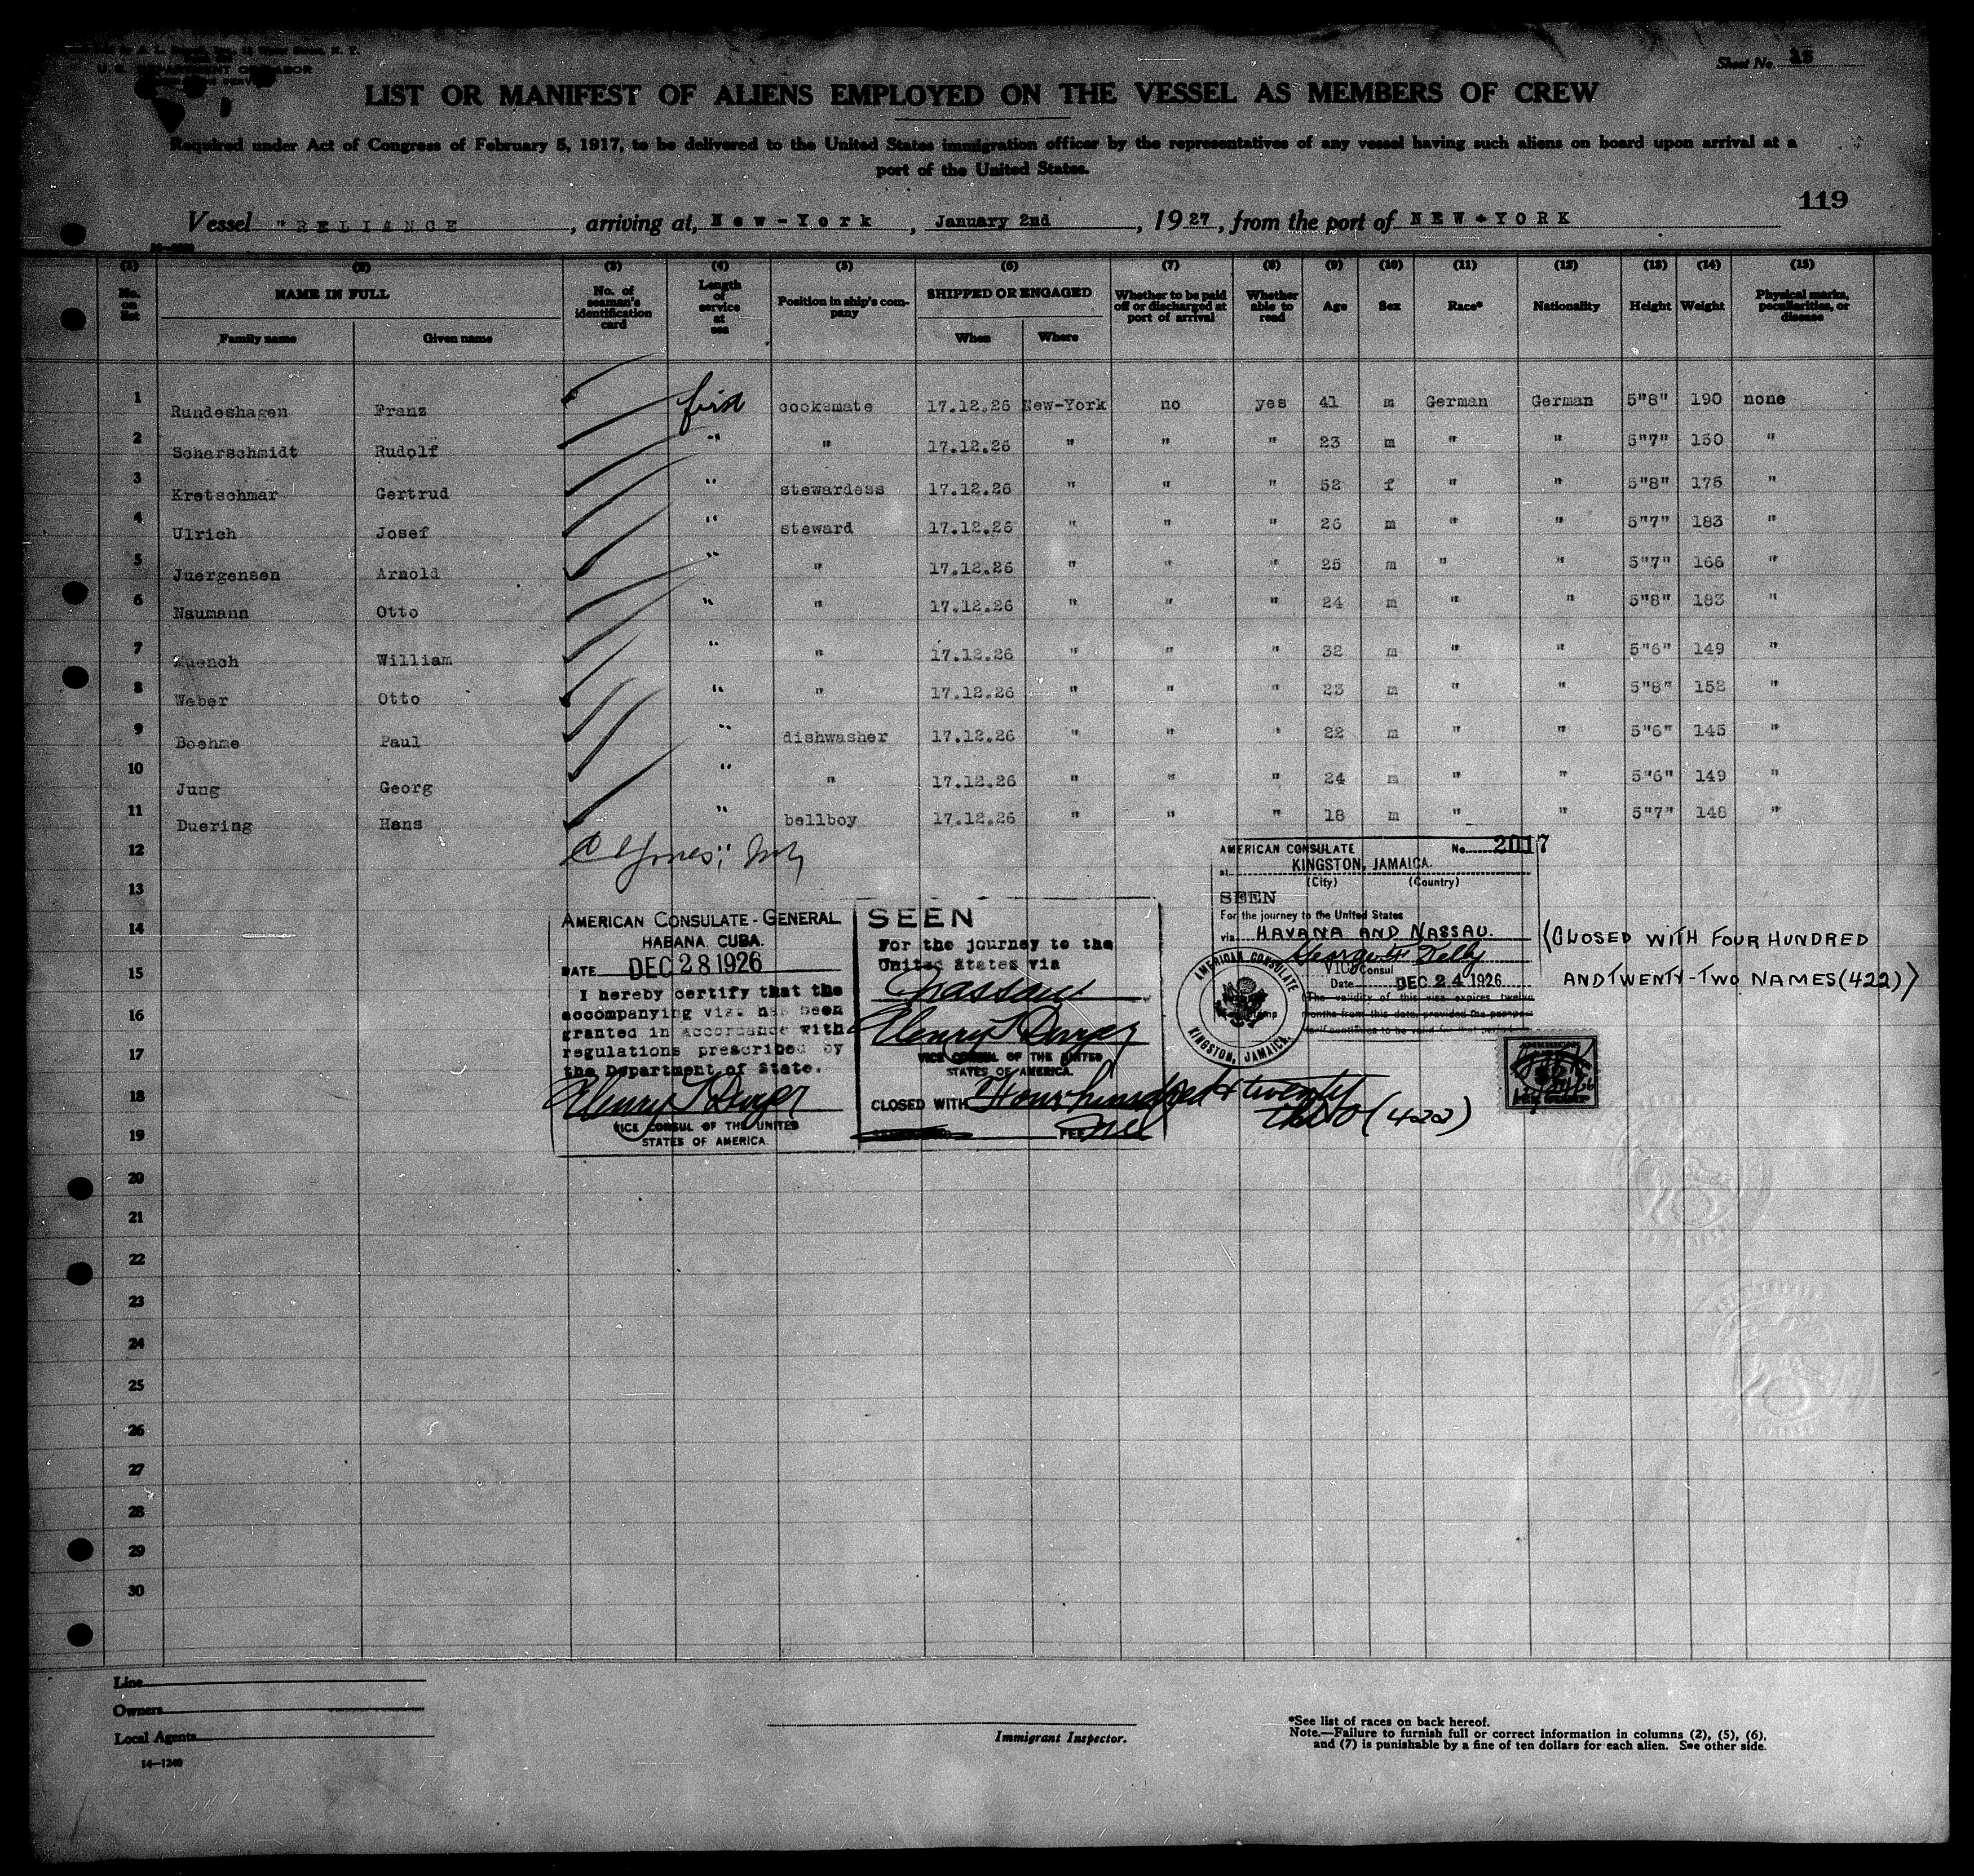 Sheet No.
LIST OR MANIFEST OF ALIENS EMPLOYED ON THE VESSEL AS MEMBERS OF CREW
Required under Act of Congress of February 5, 1917, to be delivered to the United States immigration officer by the representatives of any vessel having such aliens on board upon arrival at a
port of the United States.
119
Vessel "RELIANCE, arriving at, New-York, January 2nd, 1927, from the port of NEW-YORK
(1) (2) (3) (4) (5) (6) (7) (8) (9) (10) (11) (12) (13) (14) (15)
No. on list
NAME IN FULL
Family name Given name
No. of seaman's identification card
Length of service at sea
Position in ship's company
SHIPPED OR ENGAGED
When Where
Whether to be paid off or discharged at port of arrival
Whether able to read
Age
Sex
Race*
Nationality
Height
Weight
Physical marks, peculiarities, or disease
1 Rundeshagen Franz first cooksmate 17.12.26 New-York no yes 41 m German German 5"8" 190 none
2 Scharschmidt Rudolf " " 17.12.26 " " " 23 m " " 5"7" 150 "
3 Kretschmar Gertrud " stewardess 17.12.26 " " " 52 f " " 5"8" 175 "
4 Ulrich Josef " steward 17.12.26 " " " 26 m " " 5"7" 183 "
5 Juergensen Arnold " " 17.12.26 " " " 25 m " " 5"7" 166 "
6 Naumann Otto " " 17.12.26 " " " 24 m " " 5"8" 183 "
7 William " " 17.12.26 " " " 32 m " " 5"6" 149 "
8 Weber Otto " " 17.12.26 " " " 23 m " " 5"8" 152 "
9 Boehme Paul " dishwasher 17.12.26 " " " 22 m " " 5"6" 145 "
10 Jung Georg " " 17.12.26 " " " 24 m " " 5"6" 149 "
11 Duering Hans " bellboy 17.12.26 " " " 18 m " " 5"7" 148 "
12
13
14
15
16
17
18
19
20
21
22
23
24
25
26
27
28
29
30
AMERICAN CONSULATE-GENERAL
HABANA, CUBA.
DATE DEC 28 1926
I hereby certify that the
accompanying visa has been
granted in accordance with
regulations prescribed by
the Department of State.
VICE CONSUL OF THE UNITED
STATES OF AMERICA.
SEEN
For the journey to the
United States via
Nassau
VICE CONSUL OF THE UNITED
STATES OF AMERICA.
CLOSED WITH Four hundred & twenty
two (422)
FEE
AMERICAN CONSULATE No. 2017
at KINGSTON, JAMAICA.
(City) (Country)
SEEN
For the journey to the United States
via HAVANA AND NASSAU.
VICE Consul
Date DEC 24 1926
The validity of this visa expires twelve
months from this date, provided the passport
itself continues to be valid for that period
AMERICAN CONSULATE
KINGSTON, JAMAICA.
(CLOSED WITH FOUR HUNDRED
AND TWENTY-TWO NAMES (422))
Line
Owners
Local Agents
14—1240
Immigrant Inspector.
*See list of races on back hereof.
Note.—Failure to furnish full or correct information in columns (2), (5), (6),
and (7) is punishable by a fine of ten dollars for each alien. See other side.